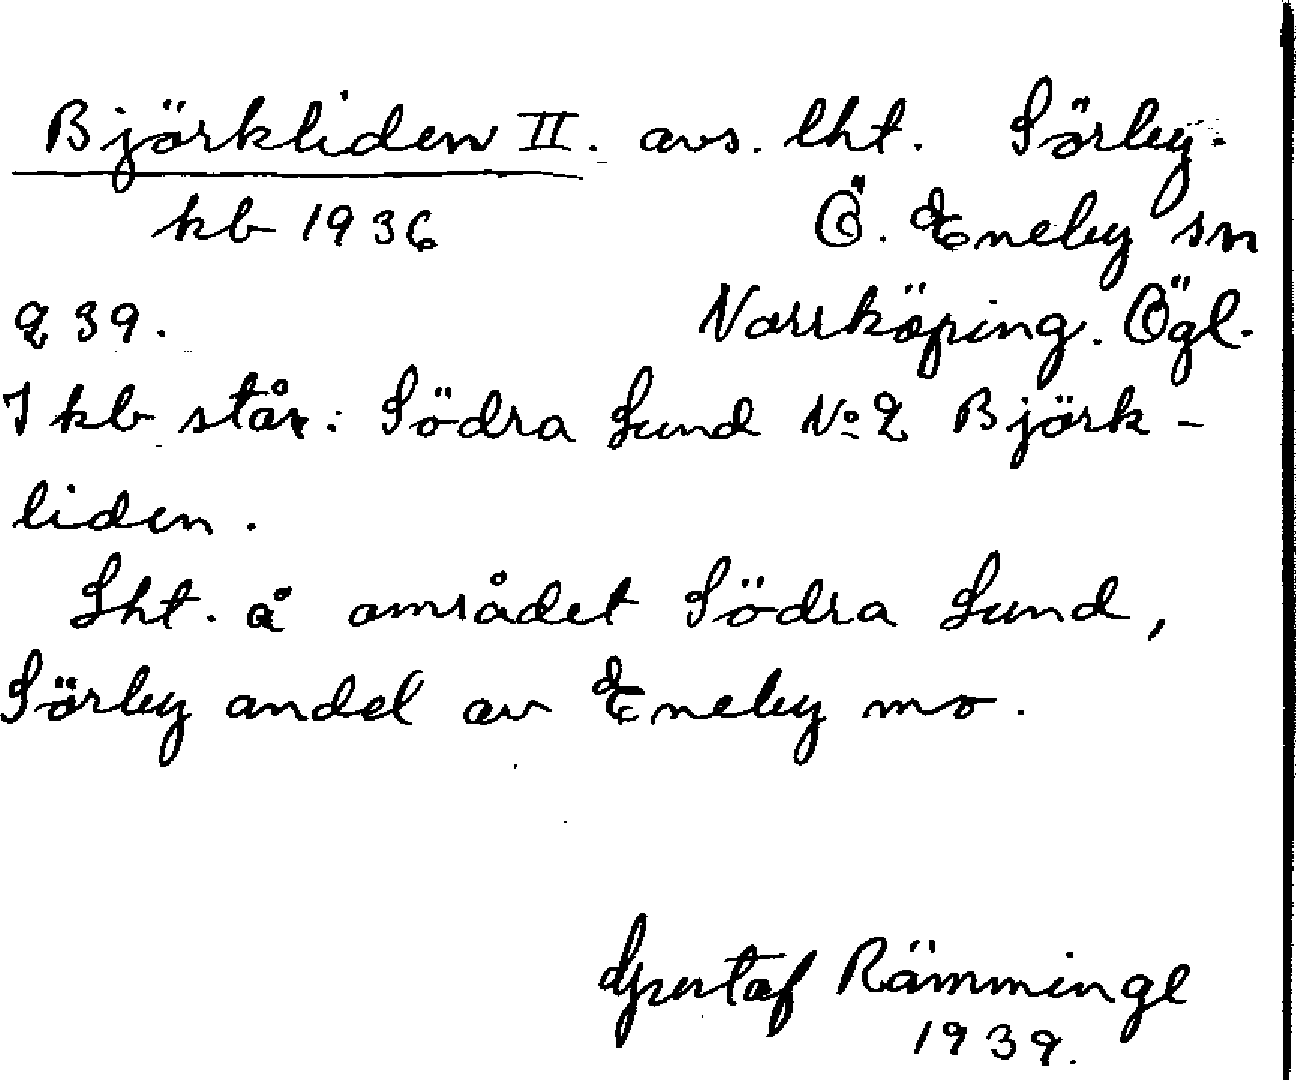 Björkliden II. avs. lht. Sörby.
kb 1936 Ö. Eneby sn
239. Norrköping. Ögl.
I kb står: Södra Sund No 2 Björk-
liden.
Lht. å området Södra Sund,
Sörby andel av Eneby mo.
Gustaf Rämminge
1939.